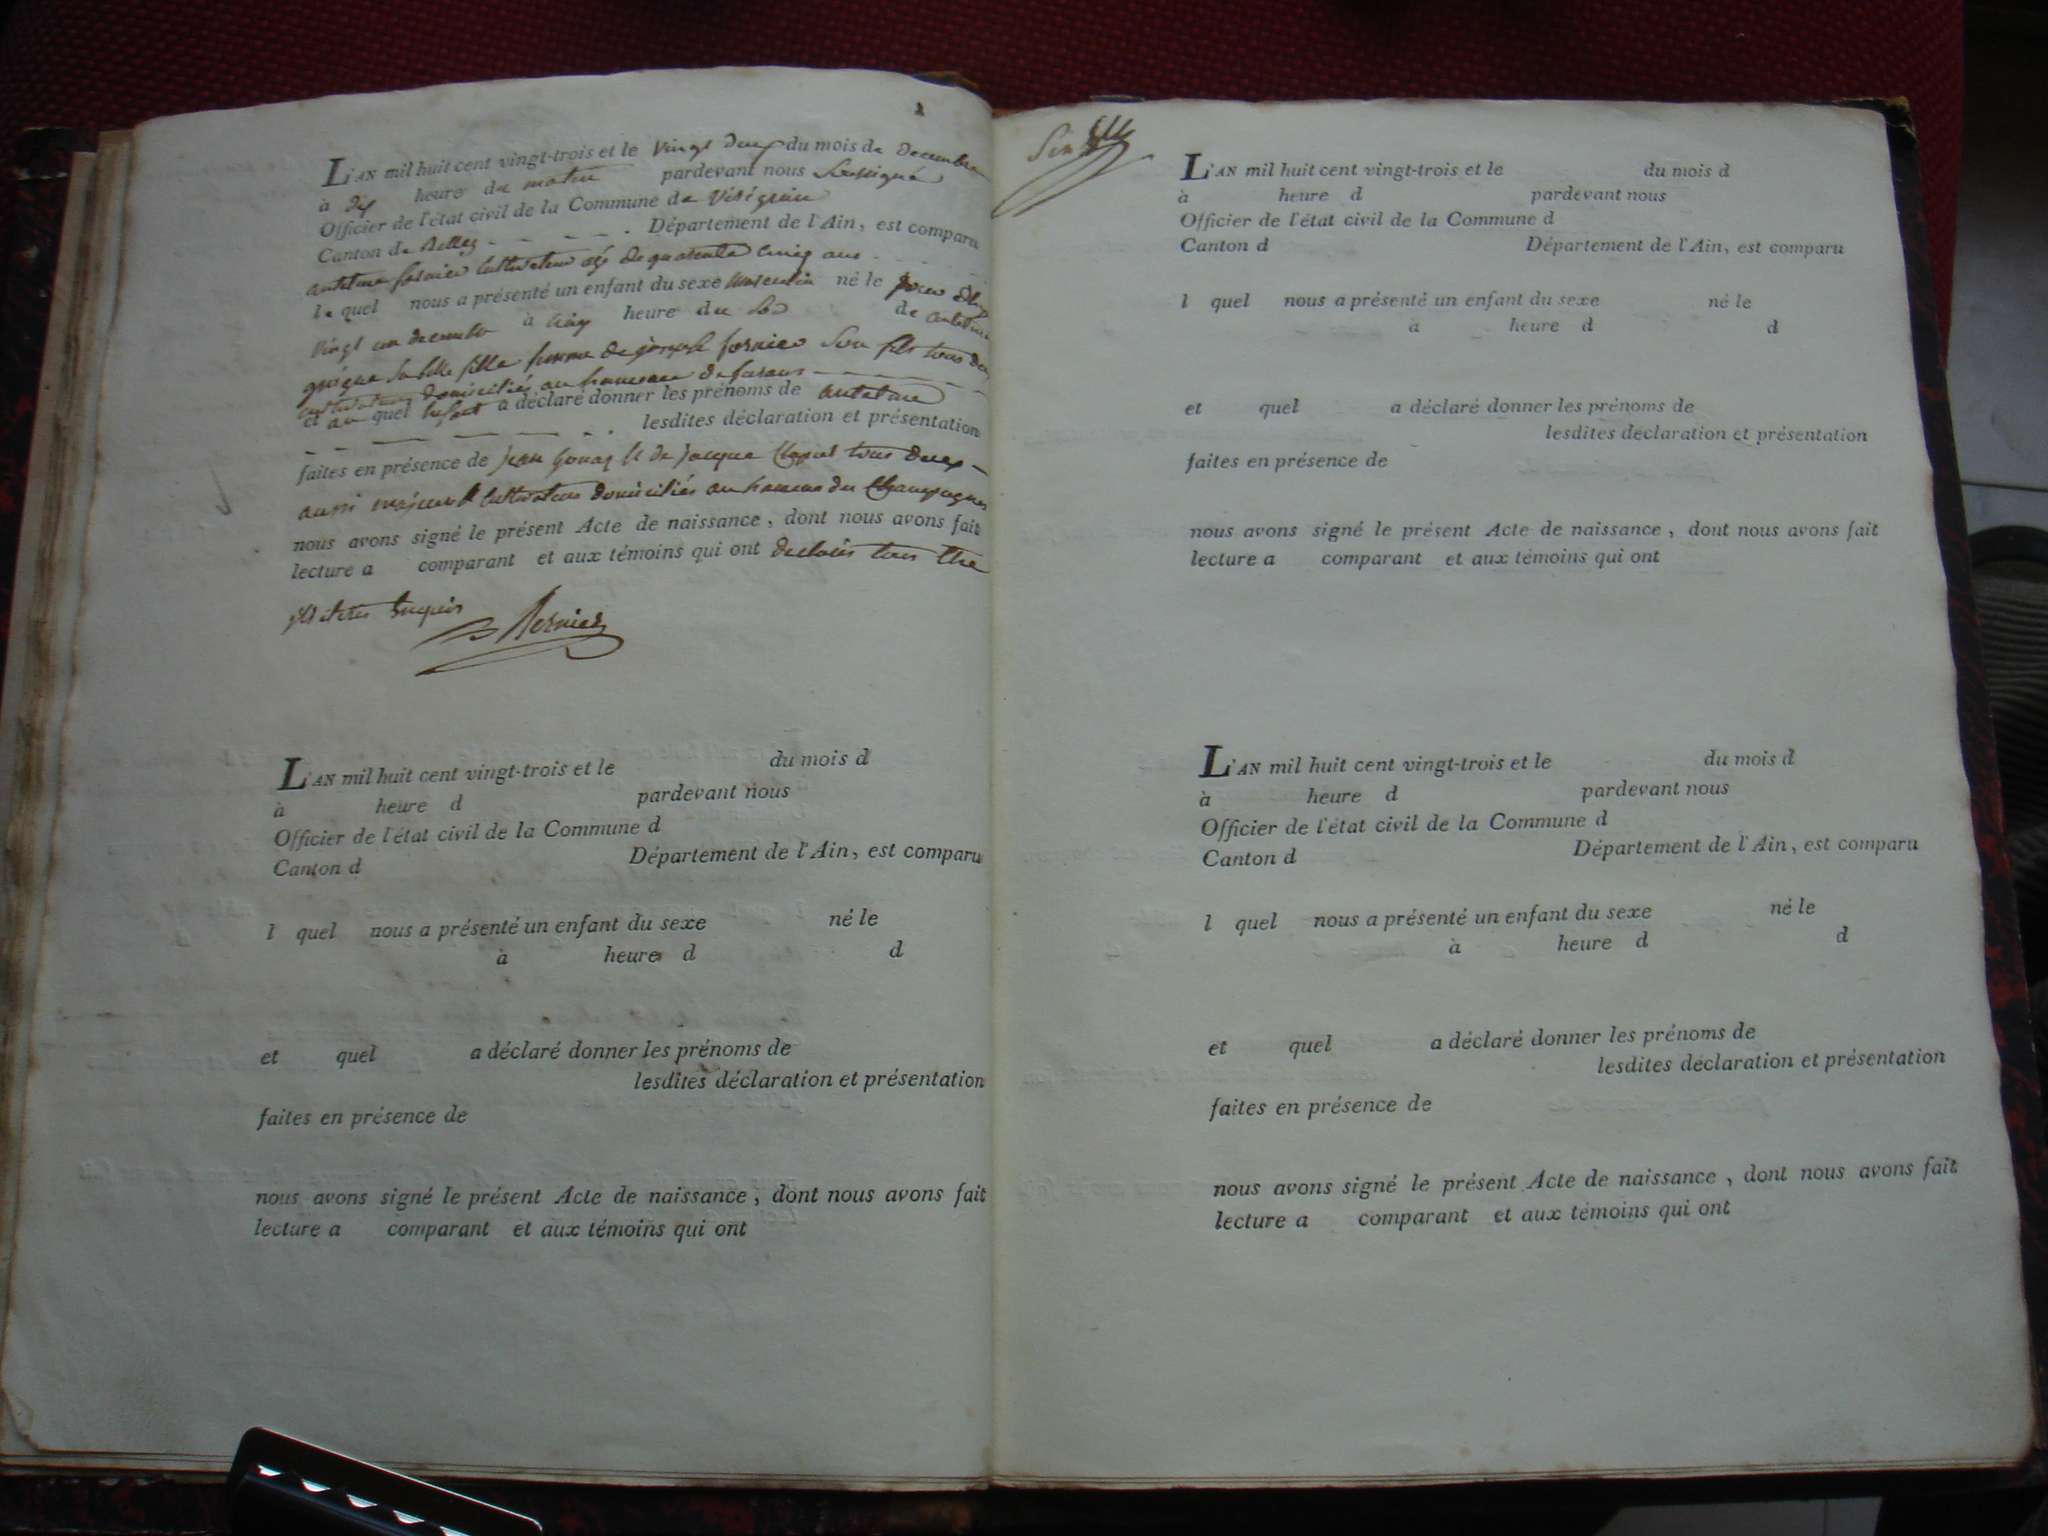 L'AN mil huit cent vingt-trois et le vingt deux du mois de decembre
à dix heure du matin pardevant nous Soussigné
Officier de l'état civil de la Commune de
Canton de Belley Département de l'Ain, est comparu
antelme fornier cultivateur agé de quarante cinq ans
le quel nous a présenté un enfant du sexe masculin né le jour d'hier
vingt un decembre à cinq heure du soir de antelmine
sa belle fille femme de joseph fornier son fils tous deux
cultivateurs domiciliés au hameau de
et au quel enfant a déclaré donner les prénoms de antelme
lesdites déclaration et présentation
faites en présence de jean et de jacque tous deux
aussi majeurs cultivateurs domiciliés au hameau du
nous avons signé le présent Acte de naissance, dont nous avons fait
lecture a comparant et aux témoins qui ont declarés tous
Bernier
L'AN mil huit cent vingt-trois et le du mois d
à heure d pardevant nous
Officier de l'état civil de la Commune d
Canton d Département de l'Ain, est comparu
l quel nous a présenté un enfant du sexe né le
à heure d d
et quel a déclaré donner les prénoms de
lesdites déclaration et présentation
faites en présence de
nous avons signé le présent Acte de naissance, dont nous avons fait
lecture a comparant et aux témoins qui ont
L'AN mil huit cent vingt-trois et le du mois d
à heure d pardevant nous
Officier de l'état civil de la Commune d
Canton d Département de l'Ain, est comparu
l quel nous a présenté un enfant du sexe né le
à heure d d
et quel a déclaré donner les prénoms de
lesdites déclaration et présentation
faites en présence de
nous avons signé le présent Acte de naissance, dont nous avons fait
lecture a comparant et aux témoins qui ont
L'AN mil huit cent vingt-trois et le du mois d
à heure d pardevant nous
Officier de l'état civil de la Commune d
Canton d Département de l'Ain, est comparu
l quel nous a présenté un enfant du sexe né le
à heure d d
et quel a déclaré donner les prénoms de
lesdites déclaration et présentation
faites en présence de
nous avons signé le présent Acte de naissance, dont nous avons fait
lecture a comparant et aux témoins qui ont